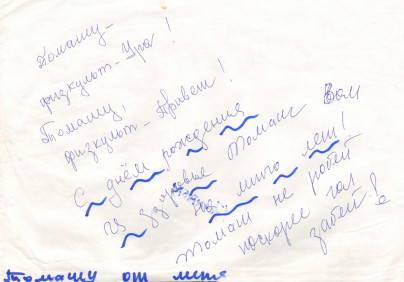 Томашу-
физкульт-Ура!
Томашу,
физкульт-Привет!
С днём рождения
Томаш Вам
из здоровье на много лет!
Томаш не робей
поскорее гол
забей!
Томашу от меня